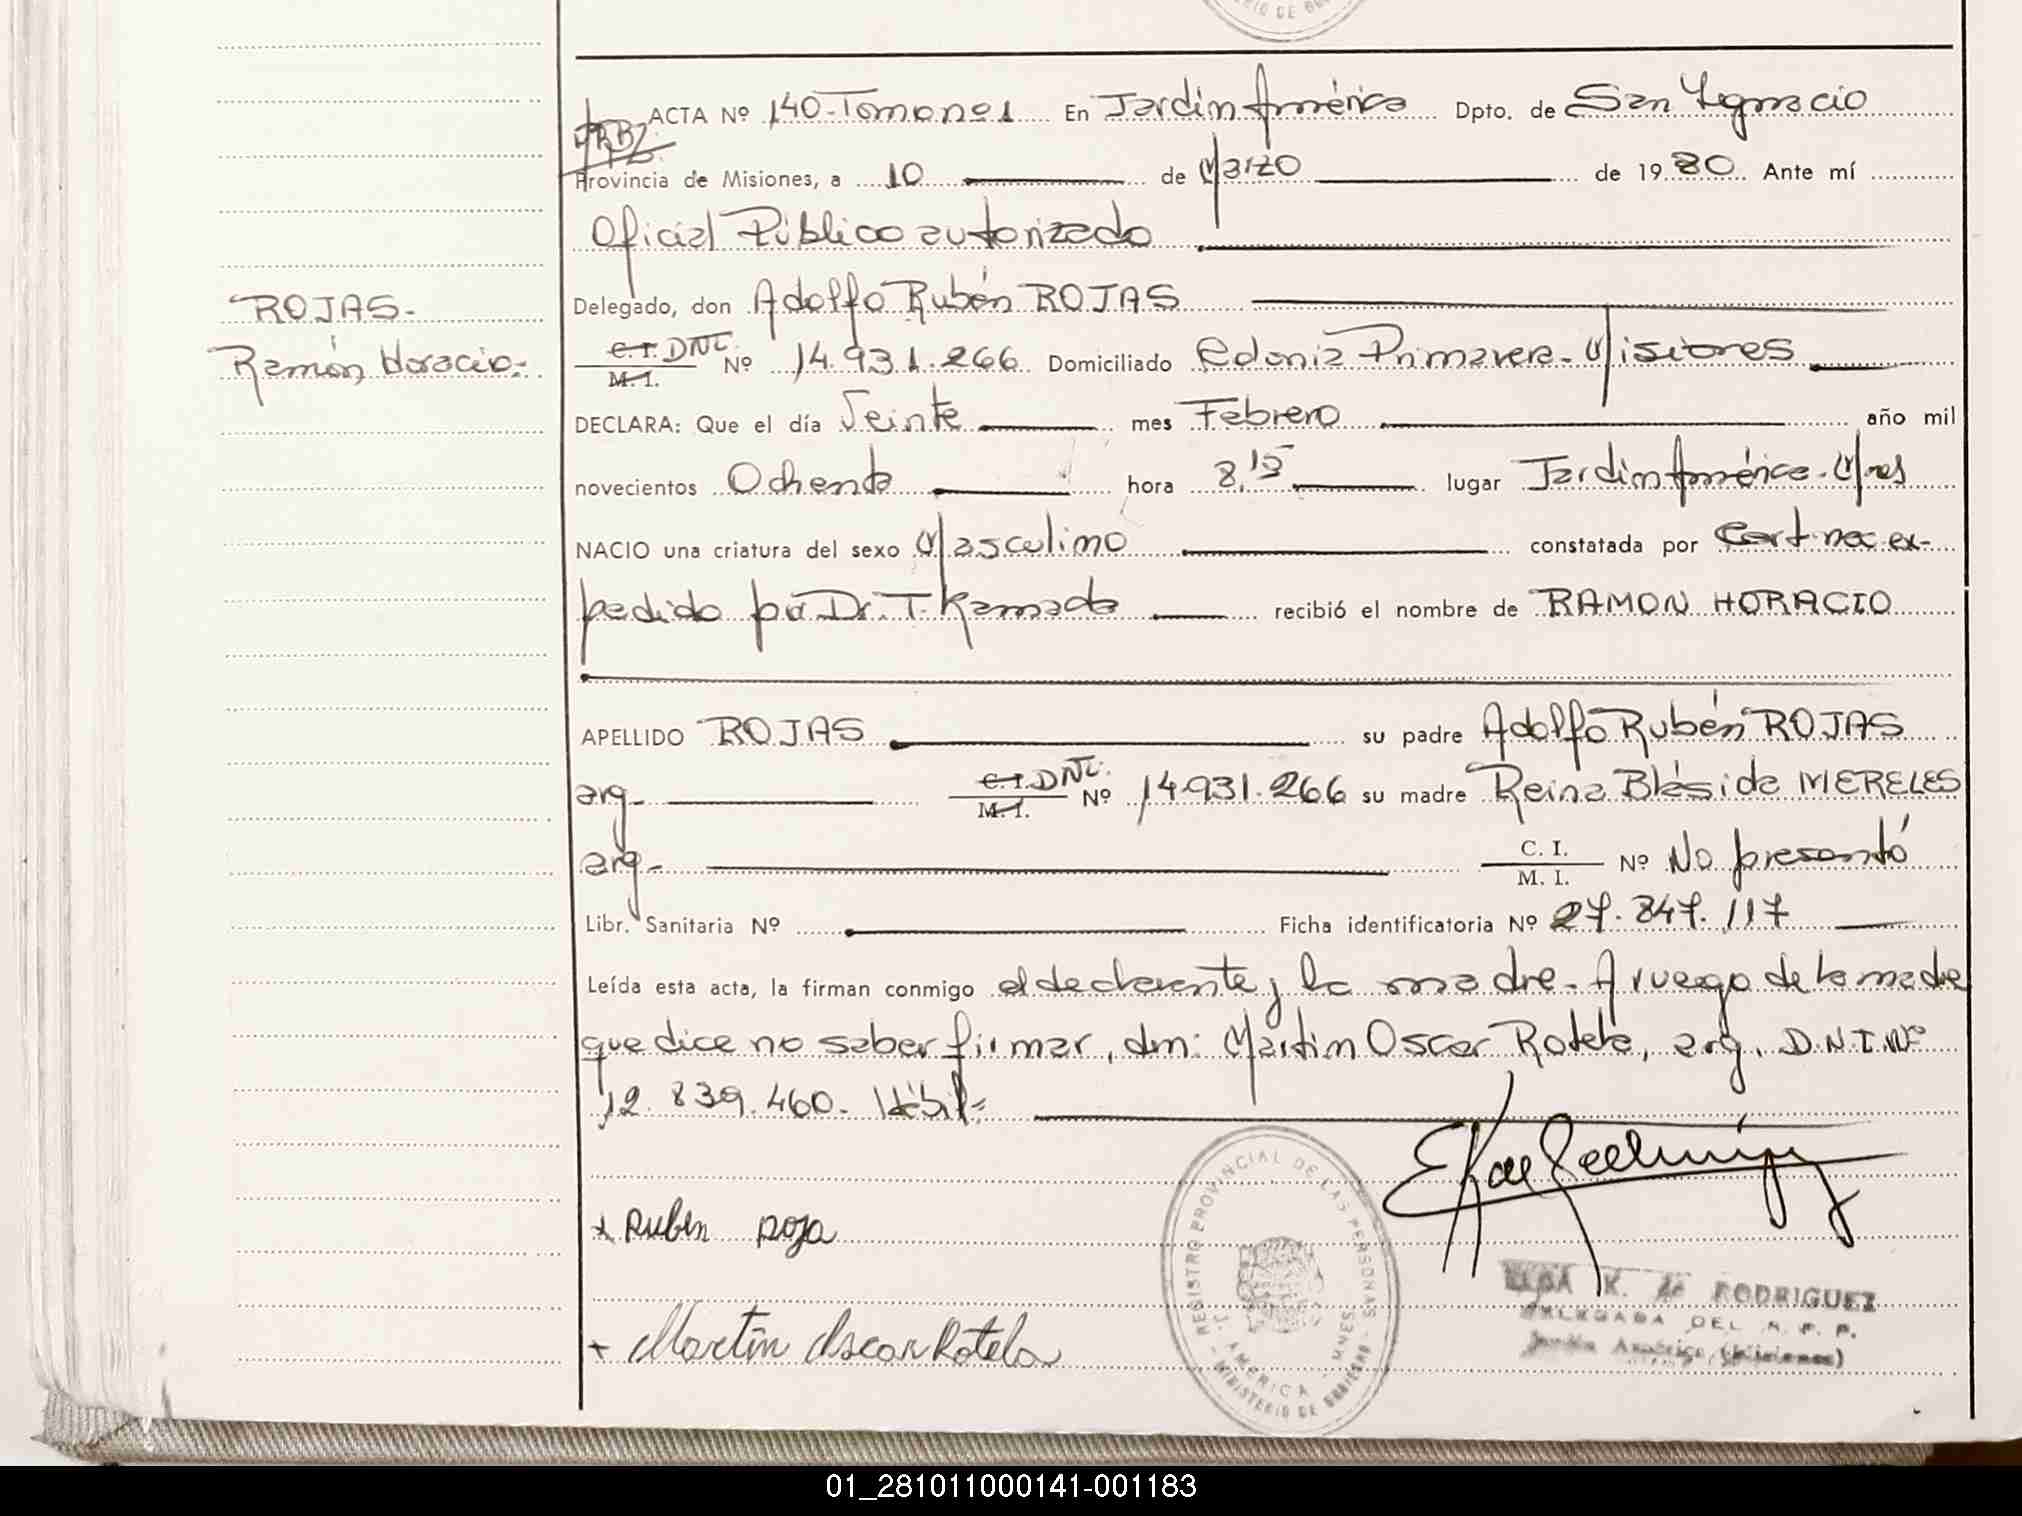 RIO DE GOB
ACTA Nº 140-Tomo nº 1 En Jardin América Dpto. de San Ignacio
Provincia de Misiones, a 10 de Marzo de 1980. Ante mí
Oficial Público autorizado
ROJAS- Delegado, don Adolfo Rubén ROJAS
Ramón Horacio- C.I. DNI. M.I. Nº 14.931.266 Domiciliado Colonia Primavera-Misiones
DECLARA: Que el día Veinte mes Febrero año mil
novecientos Ochenta hora 8,15 lugar Jardin América-Mnes
NACIO una criatura del sexo Masculino constatada por Cert nac ex-
pedido por Dr. T. Kamada recibió el nombre de RAMON HORACIO
APELLIDO ROJAS su padre Adolfo Rubén ROJAS
arg- C.I. DNI. M.I. Nº 14.931.266 su madre Reina Blásida MERELES
arg- C. I. M. I. Nº No presentó
Libr. Sanitaria Nº Ficha identificatoria Nº 27.847.117
Leída esta acta, la firman conmigo el declarante y la madre- A ruego de la madre
que dice no saber firmar, don: Martin Oscar Rotela, arg. D.N.I. Nº
12.839.460. Hábil-
x Ruben Roja
REGISTRO PROVINCIAL DE LAS PERSONAS
J. AMERICA - MNES.
MINISTERIO DE GOBIERNO
ELBA K. de RODRIGUEZ
DELEGADA DEL R. P. P.
Jardín América (Misiones)
+ Martin Oscar Rotela
01_281011000141-001183